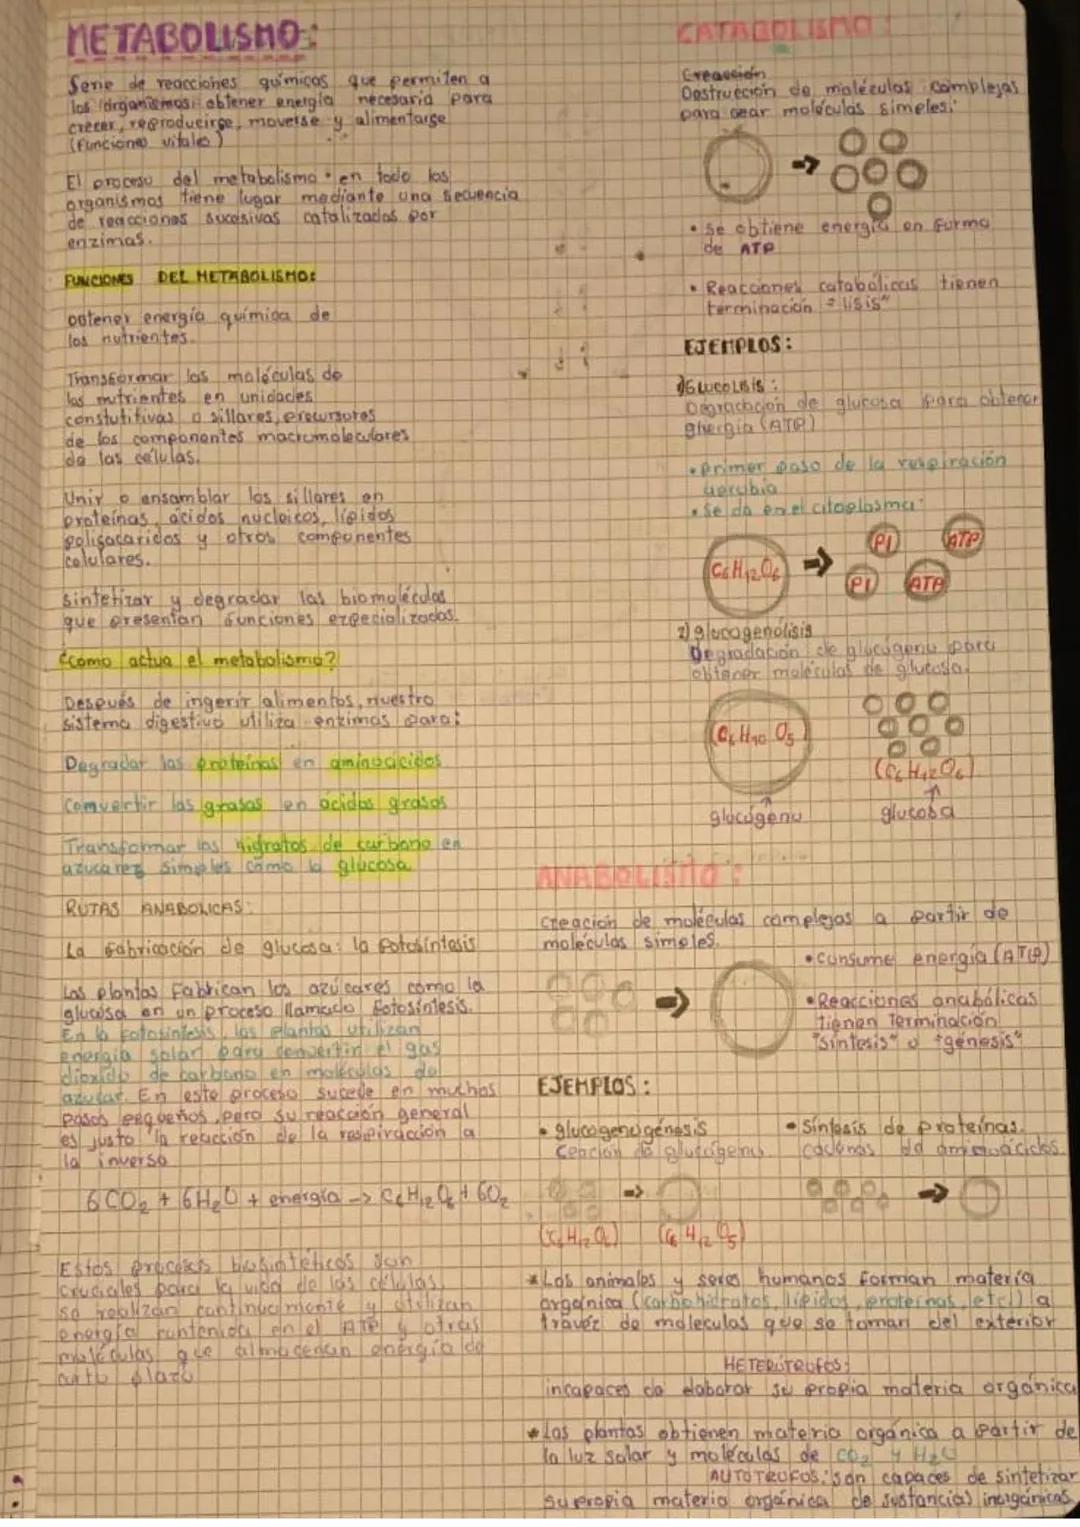 METABOLISMO:
Serie de reacciones químicas que permiten a
los organismos obtener energía necesaria para
crecer, reproducirse, moverse y alimentarse
(funciones vitales)
El proceso del metabolismo en todo los
organismos tiene lugar mediante una secuencia
de reacciones sucesivas catalizadas por
enzimas.
FUNCIONES DEL METABOLISMO:
obtener energía química de
los nutrientes.
Transformar las moléculas de
los nutrientes en unidades
constutitivas o sillares, precursores
de los componentes macromoleculares
de las células.
Unir o ensamblar los sillares en
proteínas, ácidos nucleicos, lípidos
polisacaridos y otros componentes
celulares.
sintetizar y degradar las biomoléculas
que presentan funciones especializadas.
¿como actua el metabolismo?
Después de ingerir alimentos, nuestro
sistema digestivo utiliza enzimas para:
Degradar las proteínas en aminoácidos
Convertir las grasas en ácidos grasos
Transformar los hidratos de carbono en
azucares simples como la glucosa
RUTAS ANABOLICAS:
La fabricación de glucosa: la fotosíntesis
Las plantas fabrican los azúcares como la
glucosa en un proceso llamado fotosíntesis.
En la fotosíntesis, las plantas utilizan
energia solar para convertir el gas
dioxido de carbono en moléculas de
azucar. En este proceso sucede en muchos
pasos pequeños, pero su reacción general
es justo la reacción de la respiración a
la inversa
6CO2 + 6H2O + energía -> C6H12O6 + 6O2
Estos procesos biosintéticos son
cruciales para la vida de las células,
se realizan continuamente y utilizan
energía contenida en el ATP y otras
moléculas que almacenan energía de
corto plazo
CATABOLISMO:
Creacción
Destrucción de moléculas complejas
para crear moléculas simples.
• se obtiene energía en forma
de ATP
• Reacciones catabólicas tienen
terminación "lisis"
EJEMPLOS:
1) GLUCOLISIS:
Degradación de glucosa para obtener
energia (ATP)
• primer paso de la respiración
aerubia
• se da en el citoplasma
C6H12O6
PI
ATP
PI
ATP
2) glucogenólisis
Degradación de glucógeno para
obtener moléculas de glucosa.
(C6H10O5)
(C6H12O6)
glucógeno
glucosa
ANABOLISMO:
creación de moléculas complejas a partir de
moléculas simples.
• consume energía (ATP)
• Reacciones anabólicas
tienen Terminación
"síntesis" o "génesis"
EJEMPLOS:
• glucogenogénesis
Ceación de glucógeno
(C6H12O6)
(C6H12O5)
• Síntesis de proteínas.
cadenas de aminoácidos.
* Los animales y seres humanos forman materia
orgánica (carbohidratos, lípidos, proteínas, etc) a
travéz de moleculas que se toman del exterior
HETERÓTROFOS:
incapaces de elaborar su propia materia orgánica
* Las plantas obtienen materia orgánica a partir de
la luz solar y moléculas de CO2 y H2O
AUTOTROFOS: son capaces de sintetizar
su propia materia orgánica de sustancias inorgánicas